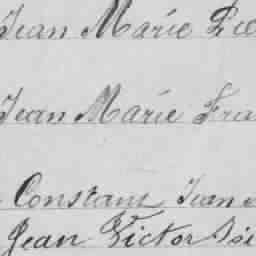 Jean Marie
Jean Marie Fra
Constant Jean
Jean Victor